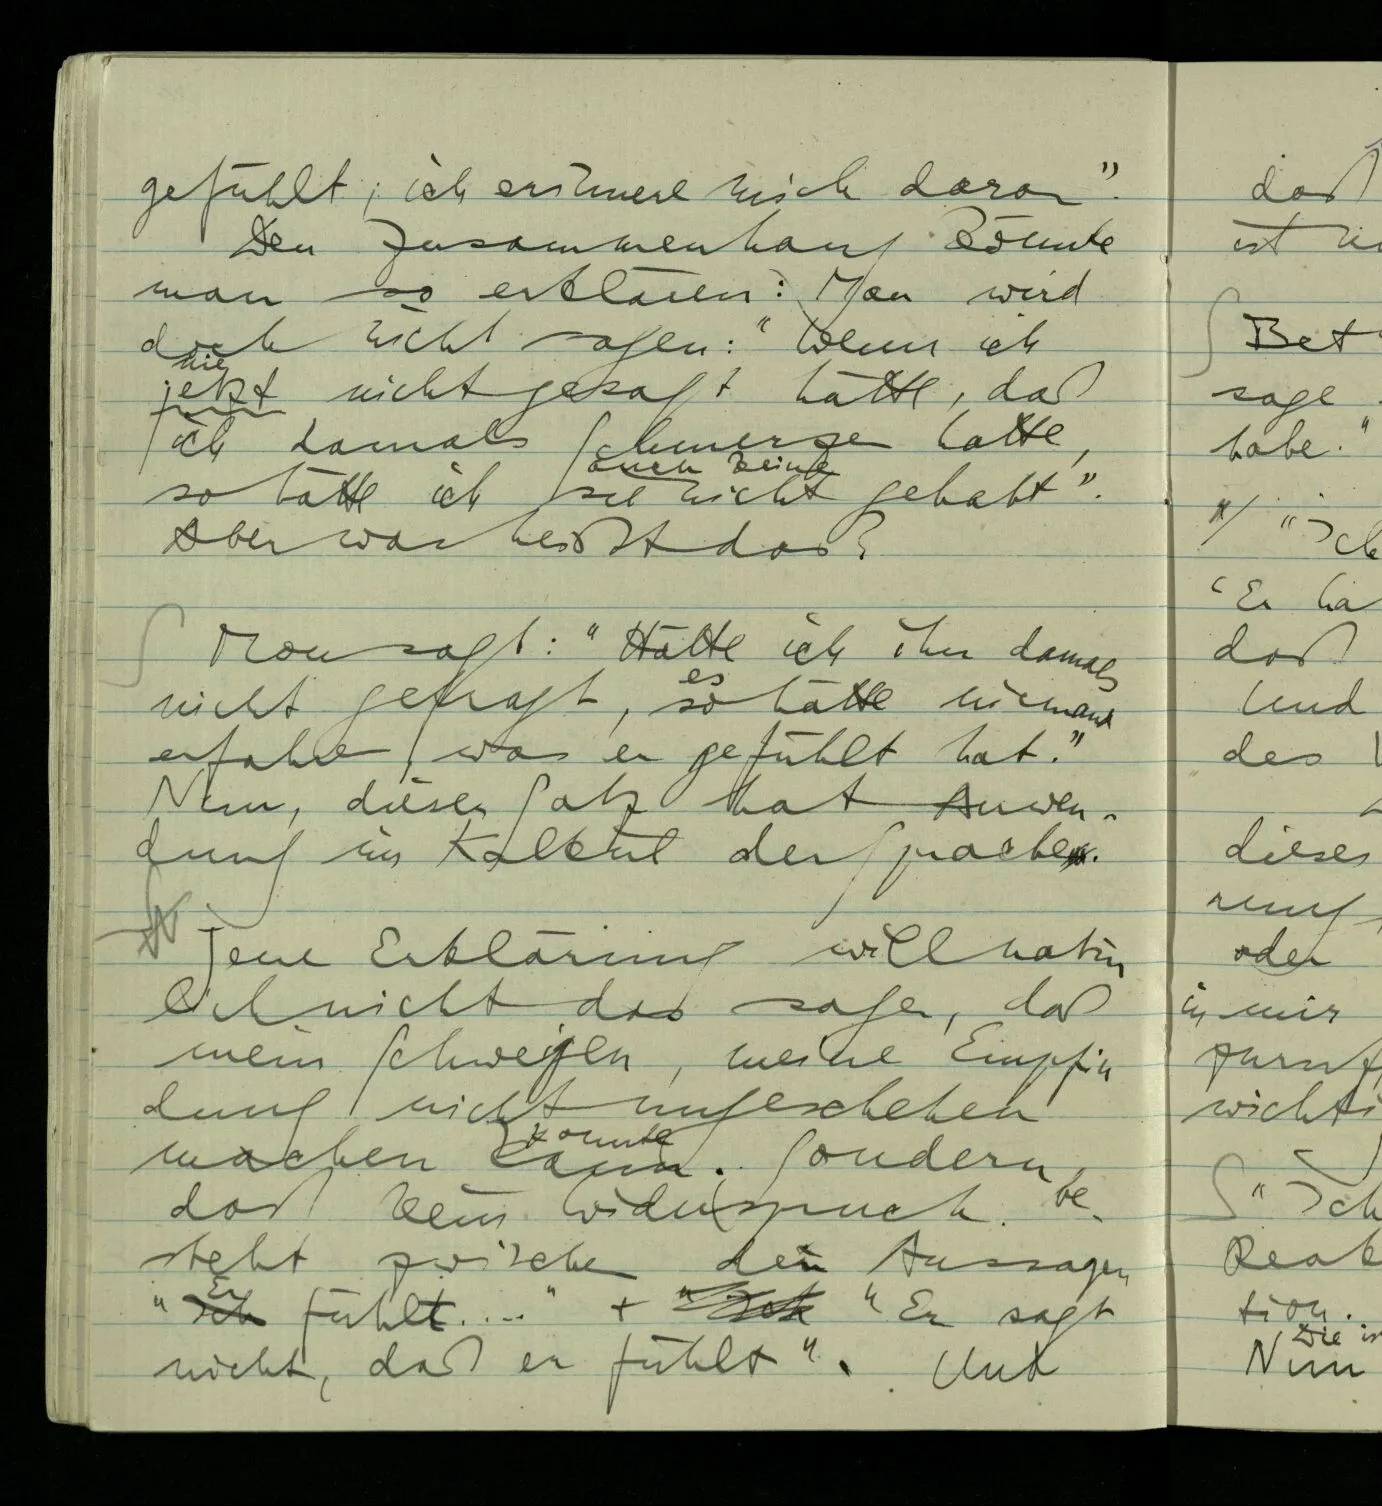 gefühlt; ich erinnere mich daran".
Den Zusammenhang könnte
man so erklären: Man wird
doch nicht sagen: "Wenn ich
nie
jetzt nicht gesagt hätte, daß
ich damals Schmerzen hatte,
auch keine
so hätte ich sie nicht gehabt".
Aber was heißt das?
∫ Man sagt: "Hätte ich ihn damals
es
nicht gefragt, so hätte niemand
erfahren, was er gefühlt hat."
Nun, dieser Satz hat Anwen-
dung im Kalkül der Sprache.
Jene Erklärung will natür
lich nicht das sagen, daß
mein Schweigen, meine Empfin
dung nicht ungeschehen
könnte
machen kann. Sondern,
daß kein Widerspruch be-
steht zwischen den Aussagen
Er
"Ich fühlt...." + "Ich "Er sagt
nicht, daß er fühlt". Und
daß
ist
∫ Bet
sage
habe."
"Ich
"Er ha
daß
Und
des
dieses
rung,
oder
in mir
wichti
∫ "Ich
Reak
tion.
Die is
Nun